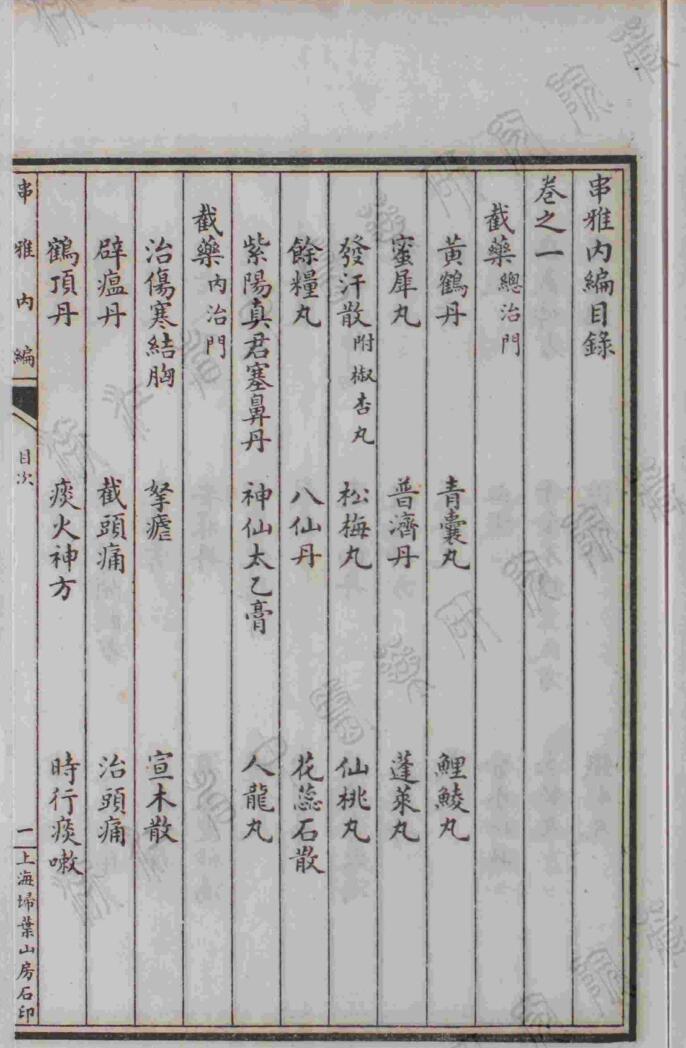 串雅内編目錄
卷之一
截藥 總治門
黃鶴丹 青囊丸 鯉鯪丸
蜜犀丸 普濟丹 蓬萊丸
發汗散 附椒杏丸 松梅丸 仙桃丸
餘糧丸 八仙丹 花蕊石散
紫陽真君塞鼻丹 神仙太乙膏 人龍丸
截藥 内治門
治傷寒結胸 拏瘧 宣木散
辟瘟丹 截頭痛 治頭痛
鶴頂丹 痰火神方 時行痰嗽
串雅内編 目次 一 上海埽葉山房石印